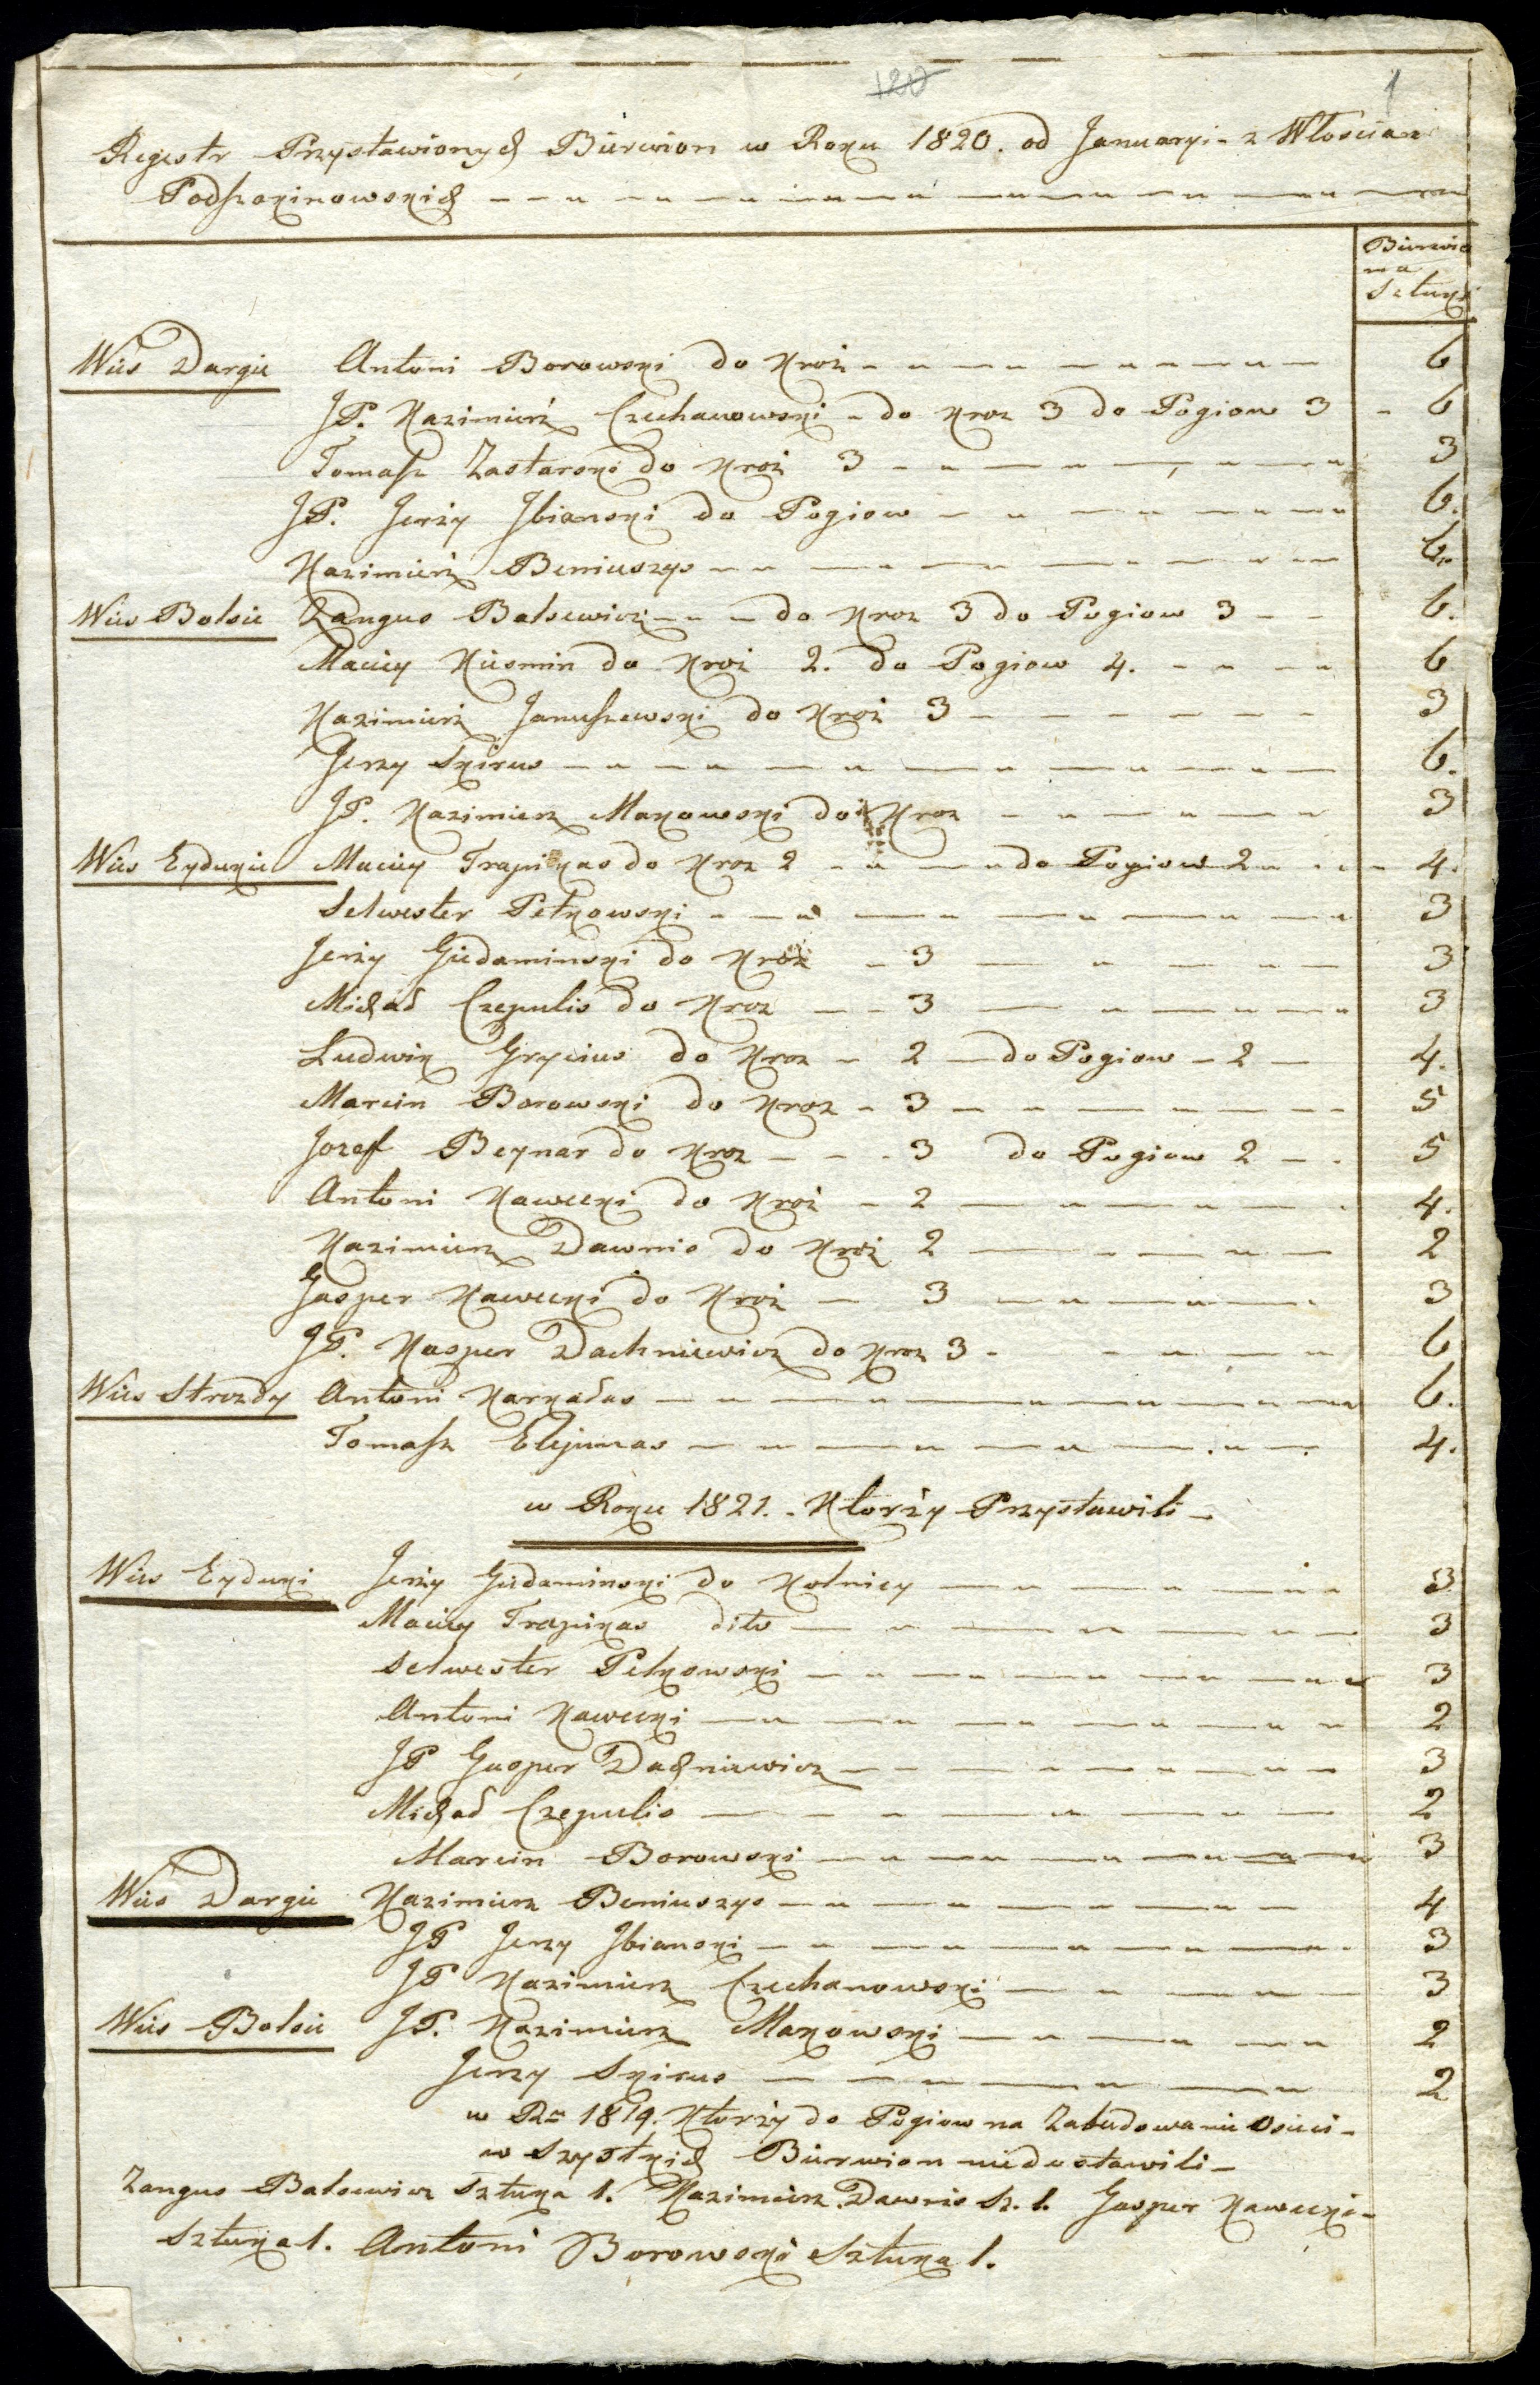 120 1
Regestr Przystawionych Bierwion w Roku 1820. od Januaryi - z Włoscian
Podszokinowskich
Bierwio
na
Sztuki
Wies Dargie Antoni Borowski do Kroż 6
JP. Kazimierz Czechanowski - do Kroz 3 do Pogiow 3 - 6
Tomasz Zastarski do Kroż 3 3
JP. Jerży Jbianski do Pogiow 6.
Kazimierz Beniuszys 6.
Wies Bolsie Zangus Balsewicz do Kroz 3 do Pogiow 3 6.
Maciey Kusmin do Kroż 2. do Pogiow 4. 6
Kazimierz Januszewski do Kroż 3 3
Jerzy Skirus 6.
JP. Kazimierz Makowski do Kroz 3
Wies Eydukie Maciey Trapikas do Kroz 2 do Pogiow 2 4.
Selwester Petkowski 3
Jerży Giedaminski do Kroż - 3 3
Michał Czepulis do Kroz 3 3
Ludwik Grycius do Kroz - 2 do Pogiow - 2 4.
Marcin Borowski do Kroz - 3 5
Jozef Beynar do Kroz 3 do Pogiow 2 5
Antoni Kawecki do Kroż - 2 4.
Kazimierz Dawnis do Kroż 2 2
Gasper Kawecki do Kroż 3 3
JP. Kasper Dachniewicz do Kroz 3 6
Wies Strozdy Antoni Karkadas 6.
Tomasz Elijmas 4.
w Roku 1821. - Ktorży Przystawili
Wies Eyduki Jerży Giedaminski do Kolnicy 3
Maciey Trapikas dito 3
Selwester Petkowski 3
Antoni Kawecki 2
JP Gasper Dachniewicz 3
Michał Czepulis 2
Marcin Borowski 3
Wies Dargie Kazimierz Beniuszys 4
JP Jerzy Jbianski 3
JP Kazimierz Czechanowski 3
Wies Bolsie JP. Kazimierz Makowski 2
Jerzy Skirus 2
w Ru 1819. Ktorży do Pogiow na Zabudowanie
wszystkich Bierwion niedostawili
Zangus Balsewicz Sztuka 1. Kazimierz Dawnis Sz. 1. Gasper Kawecki
Sztuka 1. Antoni Borowski Sztuka 1.